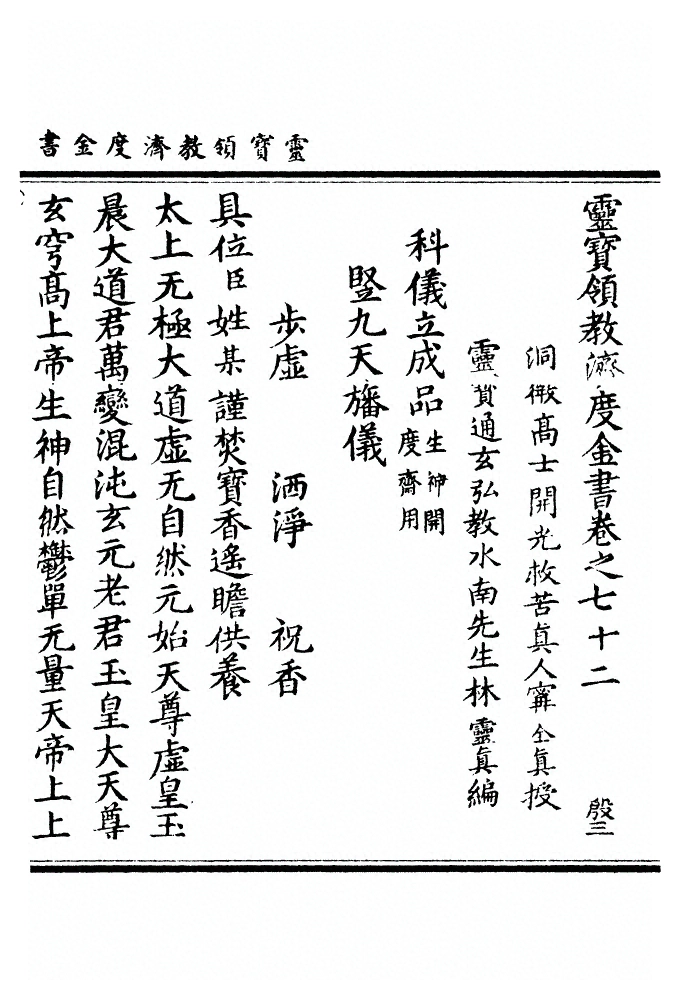 靈寶領教濟度金書
靈寶領教濟度金書卷之七十二 殷三
洞微高士開光救苦真人甯全真授
靈寶通玄弘教水南先生林靈真編
科儀立成品 生神開度齋用
竪九天旛儀
步虛 洒淨 祝香
具位臣姓某謹焚寶香遙瞻供養
太上无極大道虛无自然元始天尊虛皇玉
晨大道君萬變混沌玄元老君玉皇大天尊
玄穹高上帝生神自然鬱單无量天帝上上